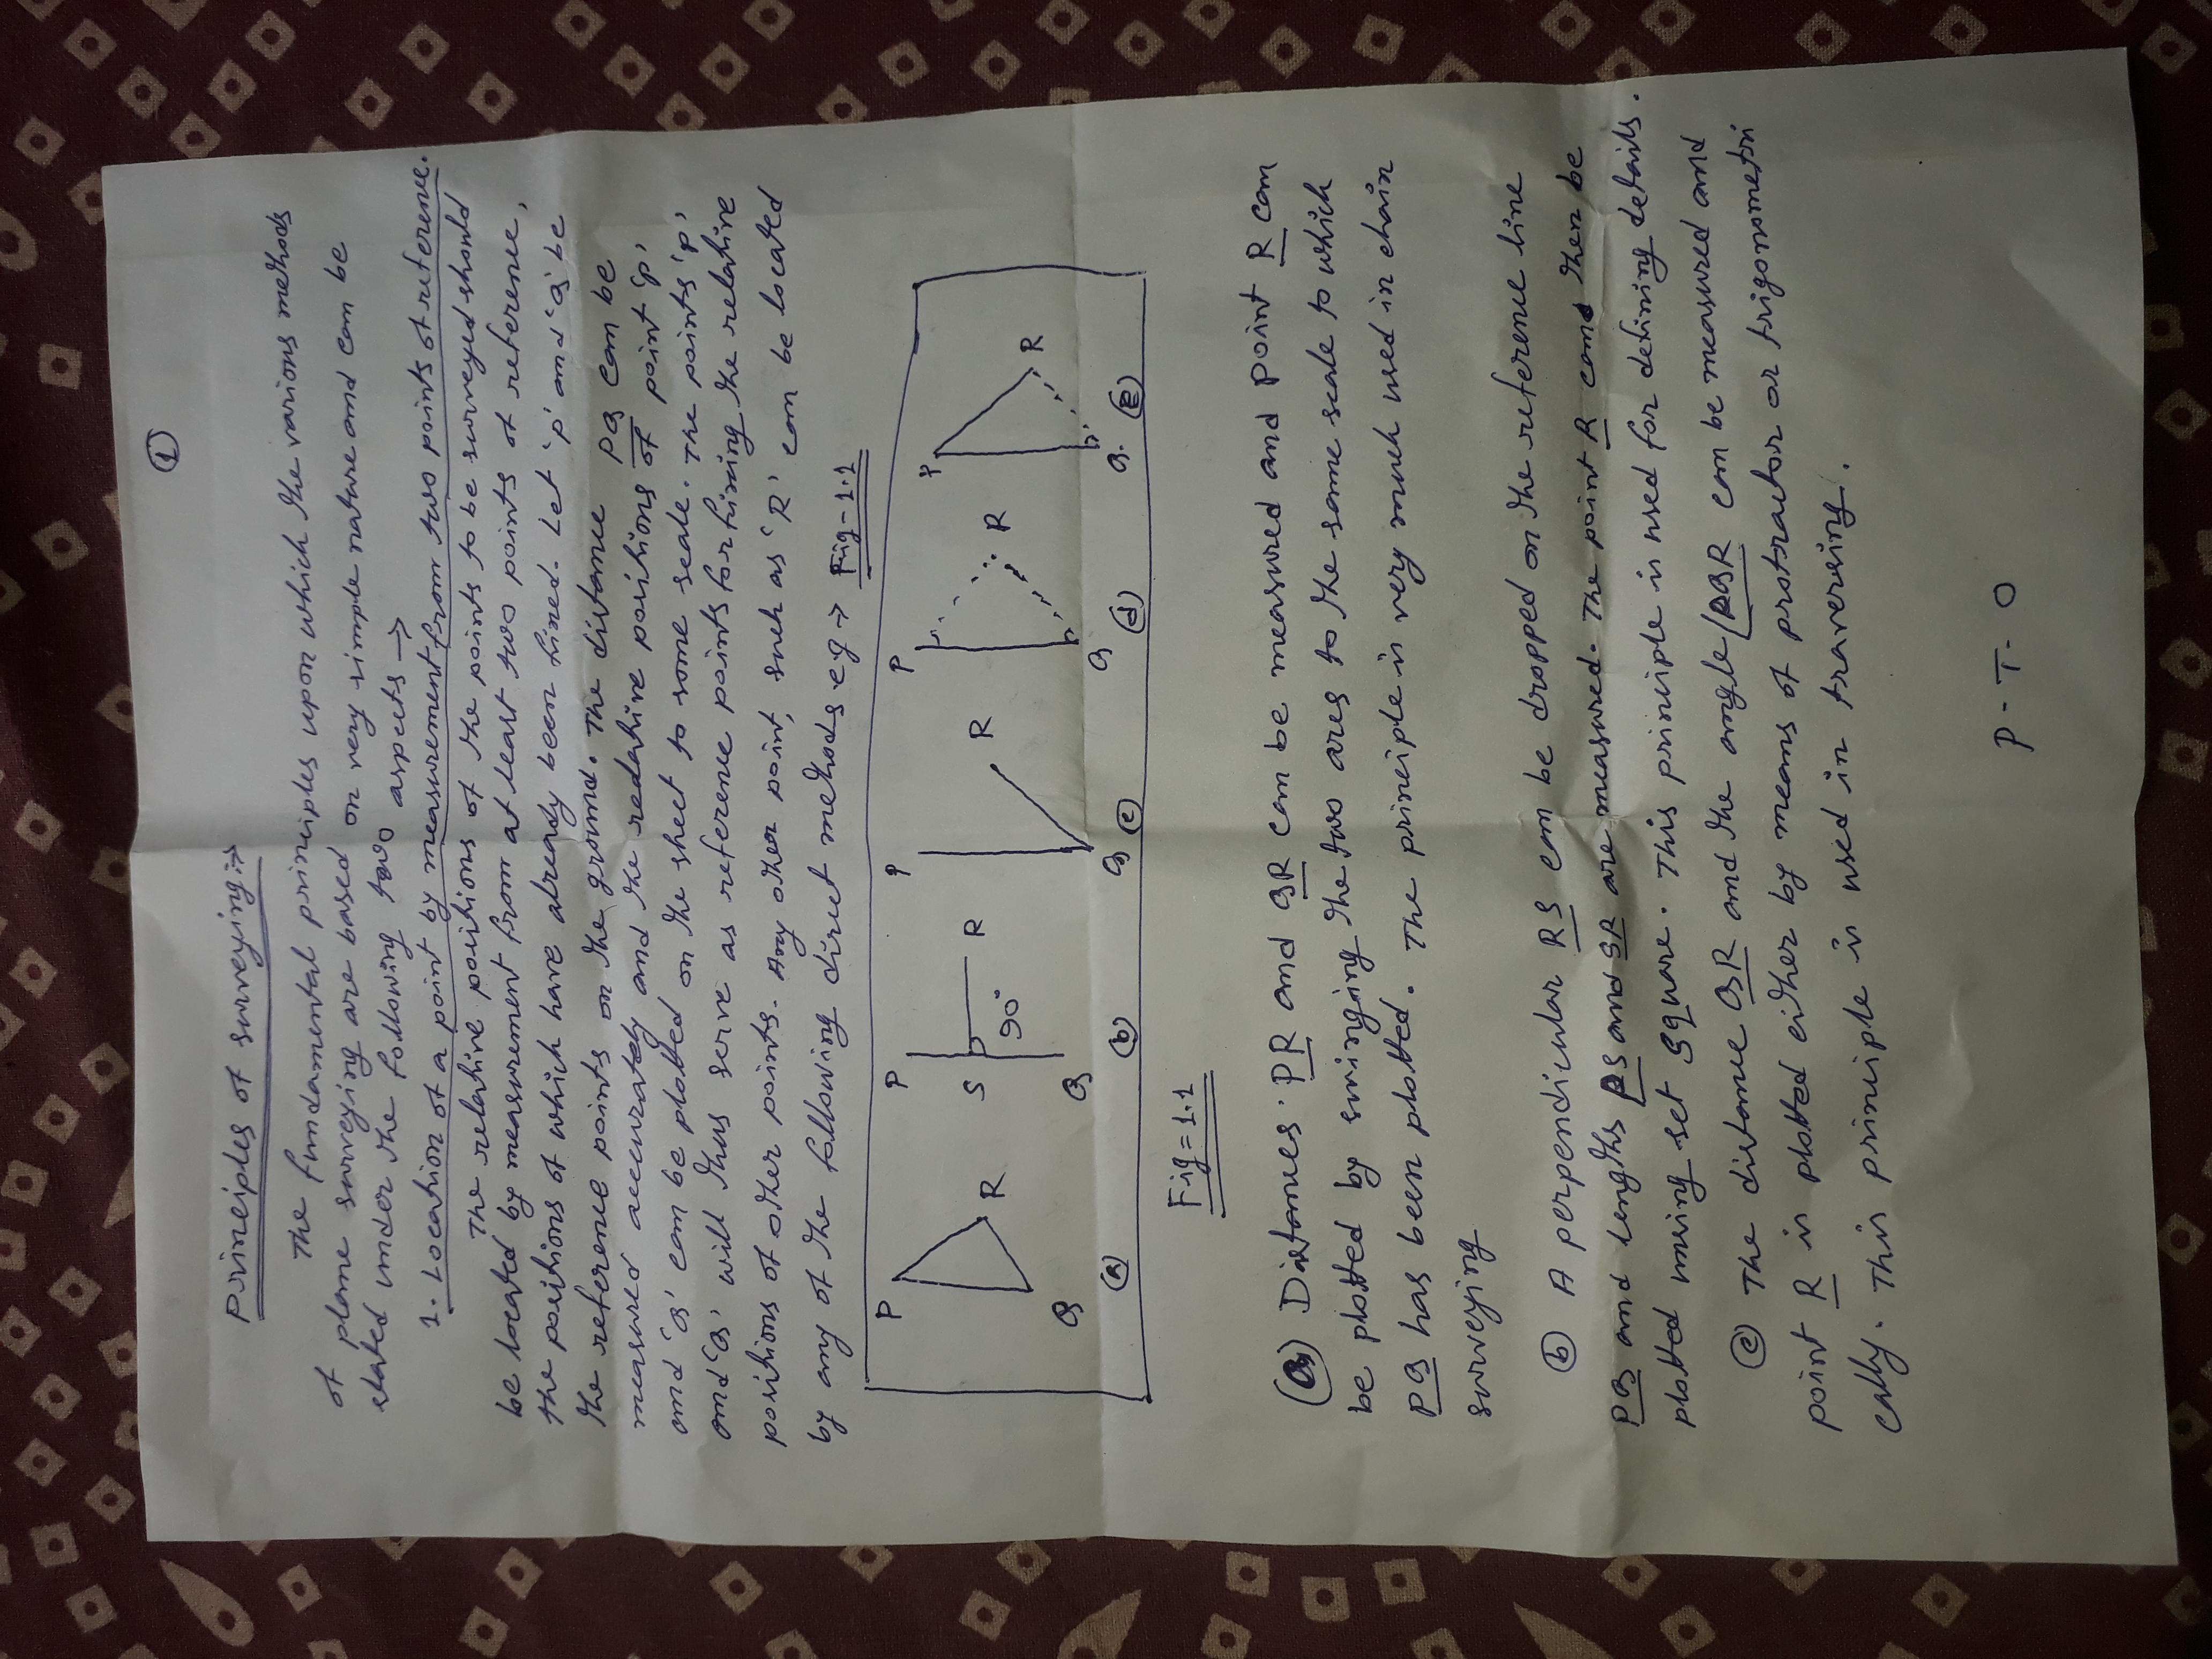 1
Principles of surveying:→
The fundamental principles upon which the various methods
of plane surveying are based on very simple nature and can be
stated under the following two aspects →
1. Location of a point by measurement from two points of reference.
The relative positions of the points to be surveyed should
be located by measurement from at least two points of reference,
the positions of which have already been fixed. Let 'P' and 'Q' be
the reference points on the ground. The distance PQ can be
measured accurately and the relative positions of point 'P'
and 'Q' can be plotted on the sheet to some scale. The points 'P'
and 'Q' will thus serve as reference points for fixing the relative
positions of other points. Any other point, such as 'R' can be located
by any of the following direct methods eg → Fig-1.1
P R Q (a)
P S 90° R Q (b)
P R Q (c)
P R Q (d)
P R Q. (e)
Fig=1.1
(a) Distances. PR and QR can be measured and point R can
be plotted by swinging the two arcs to the same scale to which
PQ has been plotted. The principle is very much used in chain
surveying
(b) A perpendicular RS can be dropped on the reference line
PQ and lengths PS and SR are measured. The point R can then be
plotted using set square. This principle is used for defining details.
(c) The distance QR and the angle PQR can be measured and
point R is plotted either by means of protractor or trigonometri
cally. This principle is used in traversing.
P-T-O